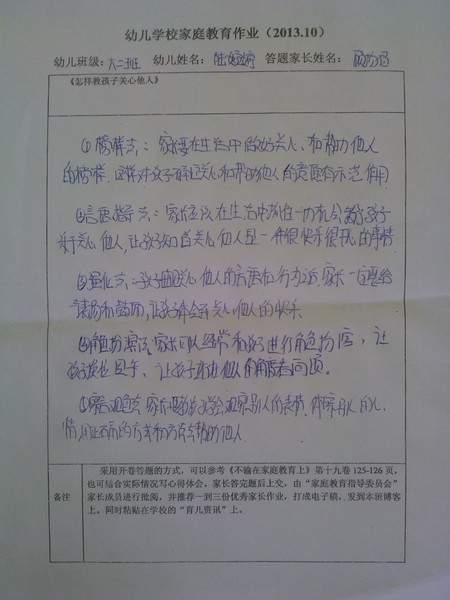 幼儿学校家庭教育作业（2013.10）
幼儿班级：大二班 幼儿姓名： 答题家长姓名：
《怎样教孩子关心他人》
①榜样法：家长要在生活中做好关心、和帮助他人
的榜样。这样对孩子 关心和帮助他人的意愿有示范作用
②言语指导法：家长应该在生活中抓住一切机会教孩子
关心他人，让孩子知道关心他人是一件很快乐很开心的事情
③强化法：孩子出现关心他人的 行为后，家长一定要给
表扬和鼓励，让孩子体会到关心他人的快乐
④角色扮演法：家长可以经常和孩子进行角色扮演，让
孩子 ，让孩子 他人 问题。
⑤ 观察法：家长要教孩子学会观察别人的表情，体察别人的心
情，用 的方式和方法去帮助他人
备注
采用开卷答题的方式，可以参考《不输在家庭教育上》第十九卷 125-126 页，
也可结合实际情况写心得体会。家长答完题后上交，由“家庭教育指导委员会”
家长成员进行批阅，并推荐一到三份优秀家长作业，打成电子稿，发到本班博客
上。同时粘贴在学校的“育儿资讯”上。